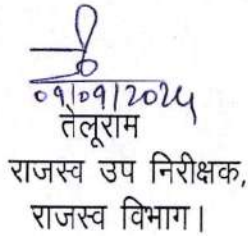 09/09/2024
तेलूराम
राजस्व उप निरीक्षक,
राजस्व विभाग।